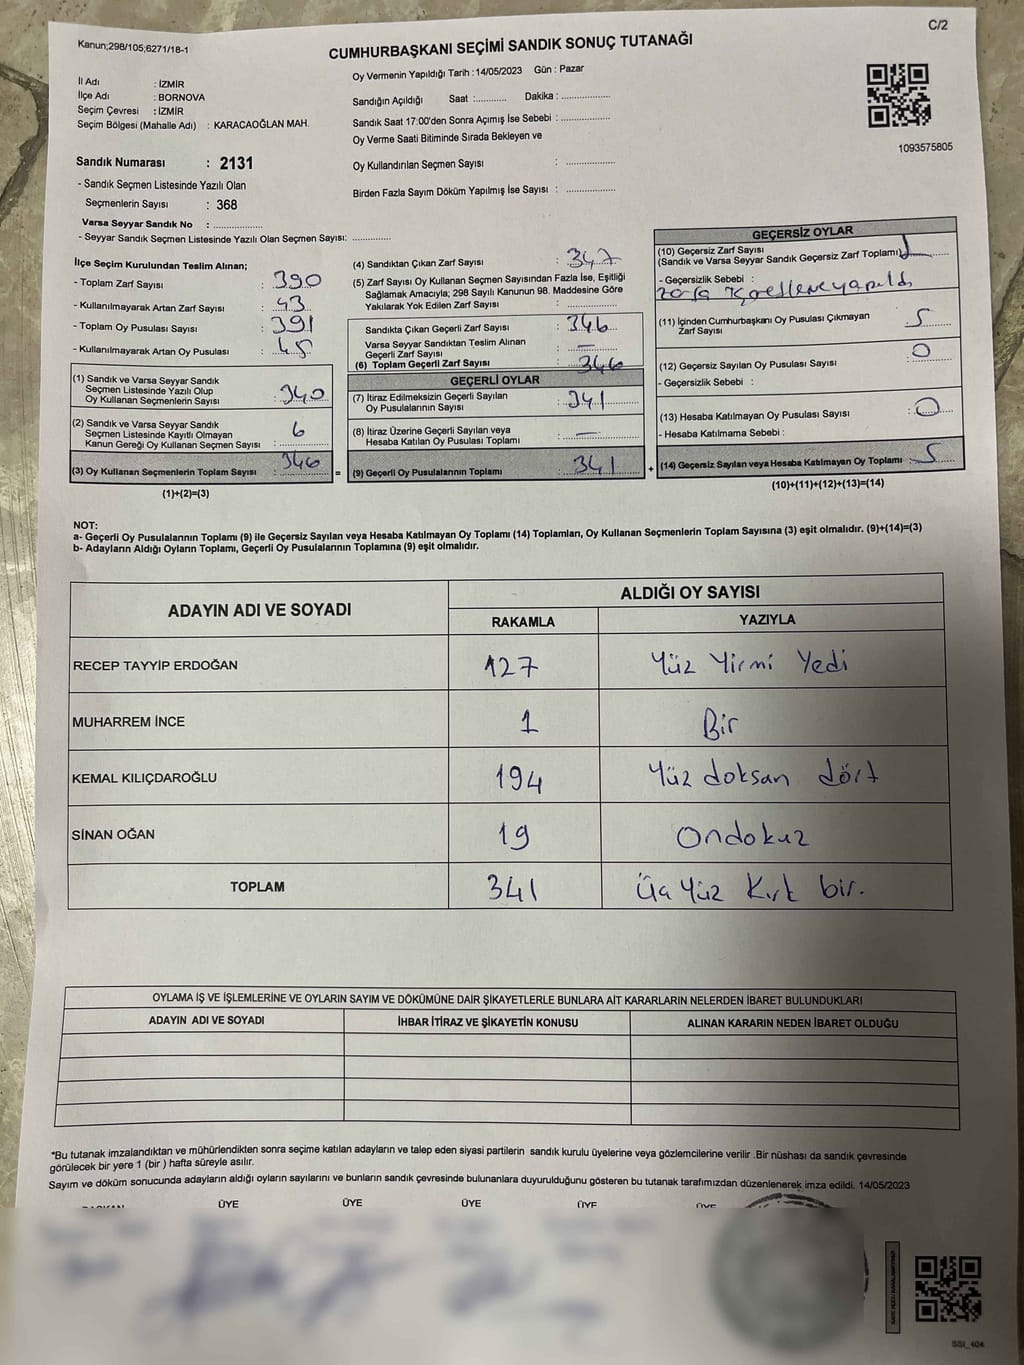 Kanun;298/105;6271/18-1
C/2
CUMHURBAŞKANI SEÇİMİ SANDIK SONUÇ TUTANAĞI
İl Adı : İZMİR
İlçe Adı : BORNOVA
Seçim Çevresi : İZMİR
Seçim Bölgesi (Mahalle Adı) : KARACAOĞLAN MAH.
Sandık Numarası : 2131
- Sandık Seçmen Listesinde Yazılı Olan
Seçmenlerin Sayısı : 368
Varsa Seyyar Sandık No : ..................
- Seyyar Sandık Seçmen Listesinde Yazılı Olan Seçmen Sayısı: ..............
Oy Vermenin Yapıldığı Tarih : 14/05/2023 Gün : Pazar
Sandığın Açıldığı Saat :........... Dakika : .................
Sandık Saat 17:00'den Sonra Açımış İse Sebebi : .................
Oy Verme Saati Bitiminde Sırada Bekleyen ve
Oy Kullandırılan Seçmen Sayısı : .................
Birden Fazla Sayım Döküm Yapılmış İse Sayısı : .................
1093575805
İlçe Seçim Kurulundan Teslim Alınan;
- Toplam Zarf Sayısı : 390
- Kullanılmayarak Artan Zarf Sayısı : 43
- Toplam Oy Pusulası Sayısı : 391
- Kullanılmayarak Artan Oy Pusulası : 45
(1) Sandık ve Varsa Seyyar Sandık
Seçmen Listesinde Yazılı Olup
Oy Kullanan Seçmenlerin Sayısı : 340
(2) Sandık ve Varsa Seyyar Sandık
Seçmen Listesinde Kayıtlı Olmayan
Kanun Gereği Oy Kullanan Seçmen Sayısı : 6
(3) Oy Kullanan Seçmenlerin Toplam Sayısı : 346
(1)+(2)=(3)
(4) Sandıktan Çıkan Zarf Sayısı : 347
(5) Zarf Sayısı Oy Kullanan Seçmen Sayısından Fazla İse, Eşitliği
Sağlamak Amacıyla; 298 Sayılı Kanunun 98. Maddesine Göre
Yakılarak Yok Edilen Zarf Sayısı : .................
Sandıkta Çıkan Geçerli Zarf Sayısı : 346
Varsa Seyyar Sandıktan Teslim Alınan
Geçerli Zarf Sayısı : —
(6) Toplam Geçerli Zarf Sayısı : 346
GEÇERLİ OYLAR
(7) İtiraz Edilmeksizin Geçerli Sayılan
Oy Pusulalarının Sayısı : 341
(8) İtiraz Üzerine Geçerli Sayılan veya
Hesaba Katılan Oy Pusulası Toplamı : —
= (9) Geçerli Oy Pusulalarının Toplamı : 341 +
GEÇERSİZ OYLAR
(10) Geçersiz Zarf Sayısı
(Sandık ve Varsa Seyyar Sandık Geçersiz Zarf Toplamı) 1
- Geçersizlik Sebebi :
(11) İçinden Cumhurbaşkanı Oy Pusulası Çıkmayan
Zarf Sayısı : 5
(12) Geçersiz Sayılan Oy Pusulası Sayısı : 0
- Geçersizlik Sebebi :
(13) Hesaba Katılmayan Oy Pusulası Sayısı : 0
- Hesaba Katılmama Sebebi :
(14) Geçersiz Sayılan veya Hesaba Katılmayan Oy Toplamı : 5
(10)+(11)+(12)+(13)=(14)
NOT:
a- Geçerli Oy Pusulalarının Toplamı (9) ile Geçersiz Sayılan veya Hesaba Katılmayan Oy Toplamı (14) Toplamları, Oy Kullanan Seçmenlerin Toplam Sayısına (3) eşit olmalıdır. (9)+(14)=(3)
b- Adayların Aldığı Oyların Toplamı, Geçerli Oy Pusulalarının Toplamına (9) eşit olmalıdır.
ADAYIN ADI VE SOYADI
ALDIĞI OY SAYISI
RAKAMLA YAZIYLA
RECEP TAYYİP ERDOĞAN 127 Yüz Yirmi Yedi
MUHARREM İNCE 1 Bir
KEMAL KILIÇDAROĞLU 194 Yüz doksan dört
SİNAN OĞAN 19 Ondokuz
TOPLAM 341 Üç Yüz Kırk bir.
OYLAMA İŞ VE İŞLEMLERİNE VE OYLARIN SAYIM VE DÖKÜMÜNE DAİR ŞİKAYETLERLE BUNLARA AİT KARARLARIN NELERDEN İBARET BULUNDUKLARI
ADAYIN ADI VE SOYADI İHBAR İTİRAZ VE ŞİKAYETİN KONUSU ALINAN KARARIN NEDEN İBARET OLDUĞU
*Bu tutanak imzalandıktan ve mühürlendikten sonra seçime katılan adayların ve talep eden siyasi partilerin sandık kurulu üyelerine veya gözlemcilerine verilir .Bir nüshası da sandık çevresinde
görülecek bir yere 1 (bir ) hafta süreyle asılır.
Sayım ve döküm sonucunda adayların aldığı oyların sayılarını ve bunların sandık çevresinde bulunanlara duyurulduğunu gösteren bu tutanak tarafımızdan düzenlenerek imza edildi. 14/05/2023
BAŞKAN ÜYE ÜYE ÜYE ÜYE ÜYE
SSI_404